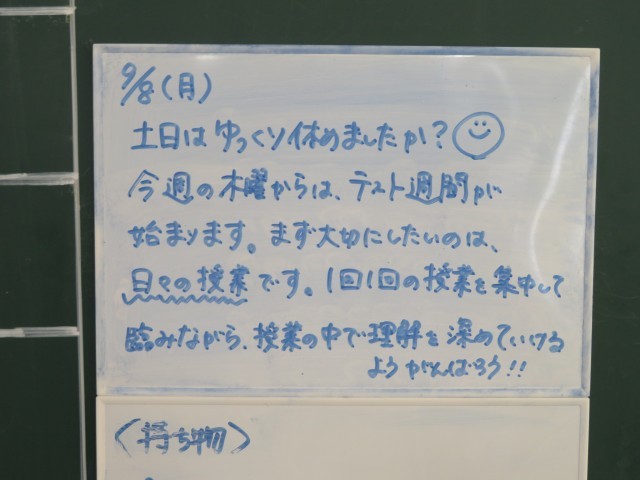 9/8(月)
土日はゆっくり休めましたか?
今週の木曜からは、テスト週間が
始まります。まず大切にしたいのは、
日々の授業です。1回1回の授業を集中して
臨みながら、授業の中で理解を深めていける
ようがんばろう!!
〈持ち物〉